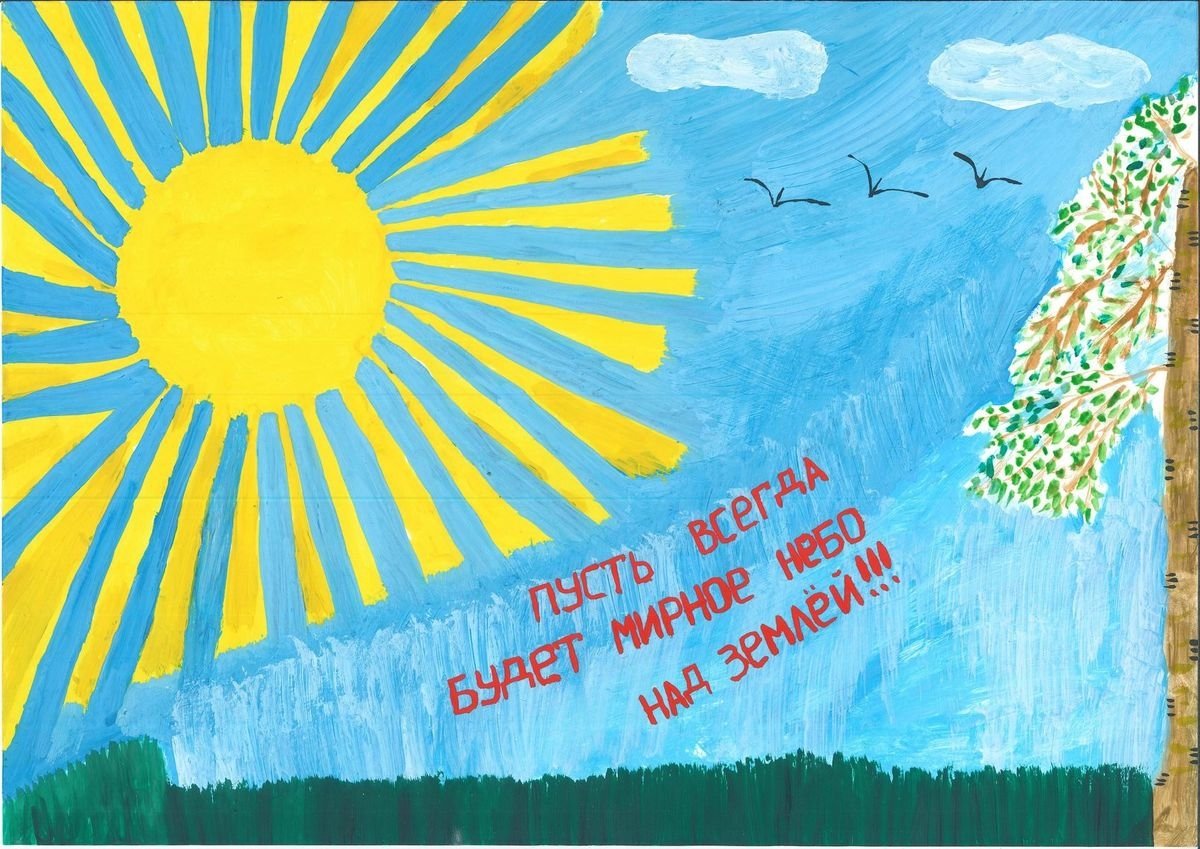 ПУСТЬ ВСЕГДА
БУДЕТ МИРНОЕ НЕБО
НАД ЗЕМЛЁЙ!!!